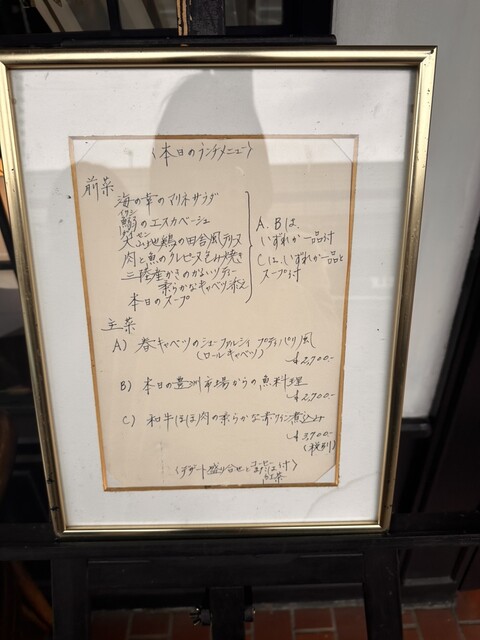 〈本日のランチメニュー〉
前菜
海の幸のマリネサラダ
イワシ
鰯のエスカベーシュ
天山地鶏の田舎風テリーヌ
肉と魚のクレピーヌ包み焼き
三陸産かきの
柔らかなキャベツ添え
本日のスープ
A、Bは、
いずれか一品付
Cは、いずれか一品と
スープ付
主菜
A) 春キャベツのシューファルシィ プティパリ風
(ロールキャベツ)
¥2,700.-
B) 本日の豊洲市場からの魚料理
¥2,700.-
C) 和牛ほほ肉の柔らかな赤ワイン煮込み
¥3,700.-
(税別)
〈デザート盛り合せとコーヒー又は付〉
紅茶